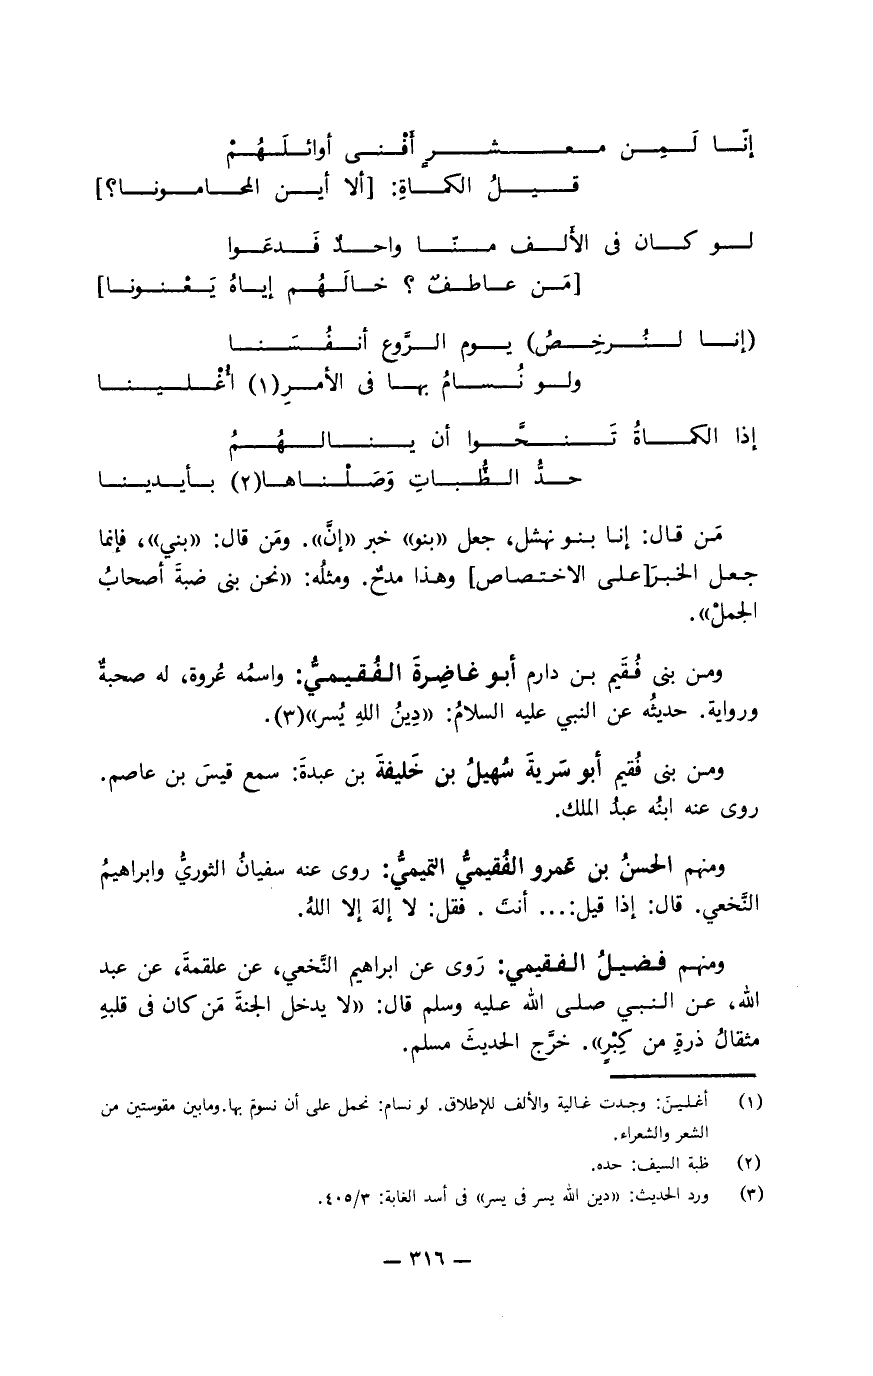 إنّا لَمِن معشرٍ أَفْنى أوائلَهُمْ
قيلُ الكماةِ: [ألا أين المحامونا؟]
لو كان فى الأَلف منّا واحدٌ فَدعَوا
[مَن عاطفٌ ؟ خالَهُم إياهُ يَعْنونا]
(إنا لنُرخِصُ) يوم الرَّوع أنفُسَنا
ولو نُسامُ بها فى الأمرِ(١) أُغْلينا
إذا الكماةُ تَنحَّوا أن ينالهُمُ
حدُّ الظُّباتِ وَصَلْناها(٢) بأيدينا
مَن قال: إنا بنو نهشل، جعل «بنو» خبر «إنَّ». ومَن قال: «بني»، فإنما
جعل الخبرَ[على الاختصاص] وهذا مدحٌ. ومثلُه: «نحن بنى ضبةَ أصحابُ
الجملْ».
ومن بنى فُقَيم بن دارم أبو غاضِرةَ الفُقيميُّ: واسمُه عُروة، له صحبةٌ
ورواية. حديثُه عن النبي عليه السلامُ: «دِينُ اللهِ يُسر»(٣).
ومن بنى فُقيم أبو سَريةَ سُهيلُ بن خَليفةَ بن عبدةَ: سمع قيسَ بن عاصم.
روى عنه ابنُه عبدُ الملك.
ومنهم الحسنُ بن عَمرو الفُقيميُّ التميميُّ: روى عنه سفيانُ الثوريُّ وابراهيمُ
النَّخعي. قال: إذا قيل:... أنتَ . فقل: لا إلهَ إلا اللهُ.
ومنهم فضيلُ الفقيمي: رَوى عن ابراهيم النَّخعي، عن علقمةَ، عن عبد
الله، عن النبي صلى الله عليه وسلم قال: «لا يدخل الجنةَ مَن كان فى قلبهِ
مثقالُ ذرةٍ من كِبْرٍ». خرَّج الحديثَ مسلم.
(١) أغلينَ: وجدت غالية والألف للإطلاق. لو نسام: نحمل على أن نسومَ بها.ومابين مقوستين من
الشعر والشعراء.
(٢) ظبة السيف: حده.
(٣) ورد الحديث: «دين الله يسر فى يسر» فى أسد الغابة: ٤٠٥/٣.
— ٣١٦ —